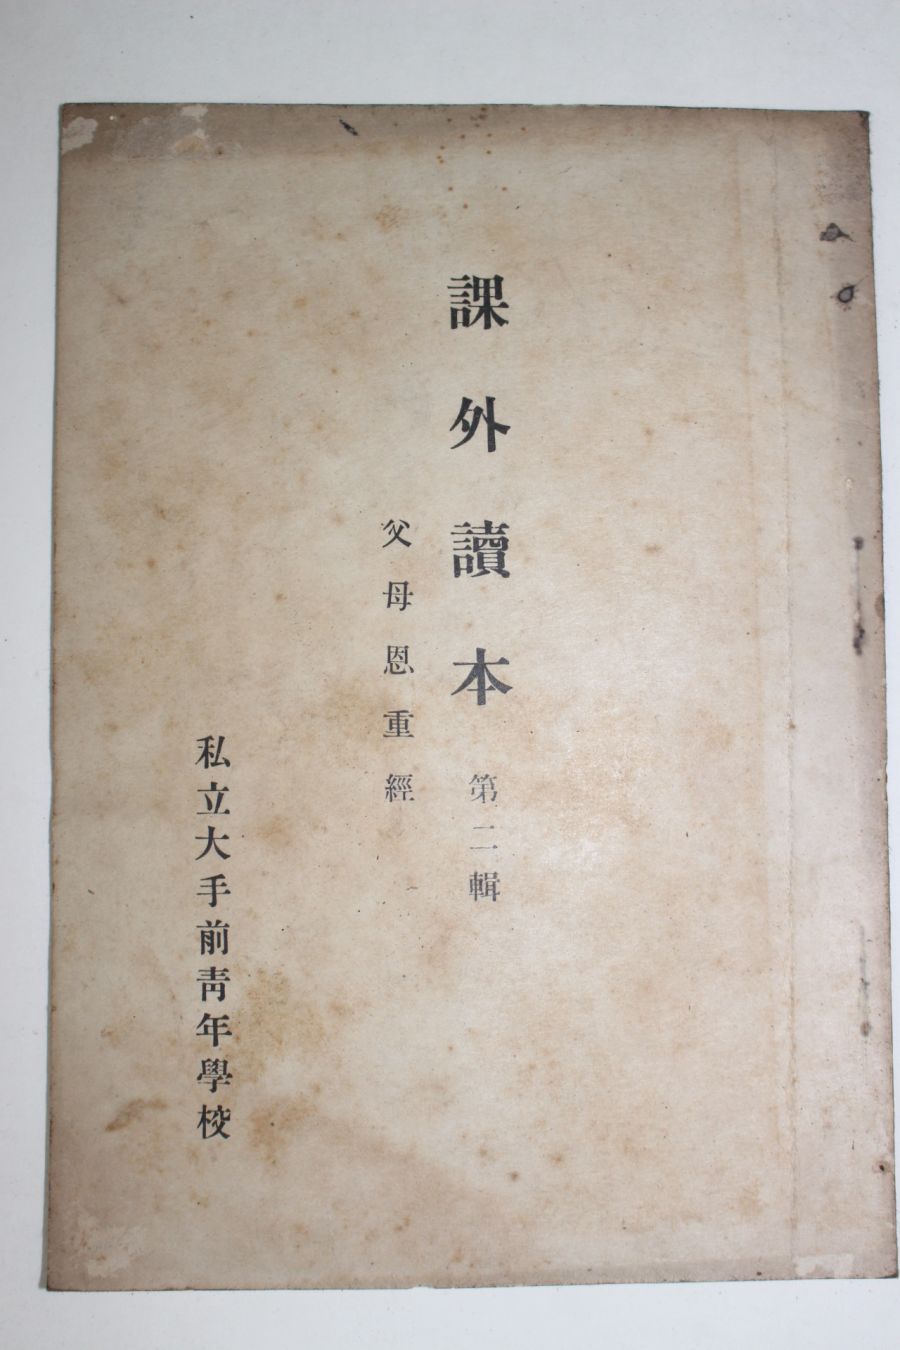 課外讀本 第二輯
父母恩重經
私立大手前靑年學校